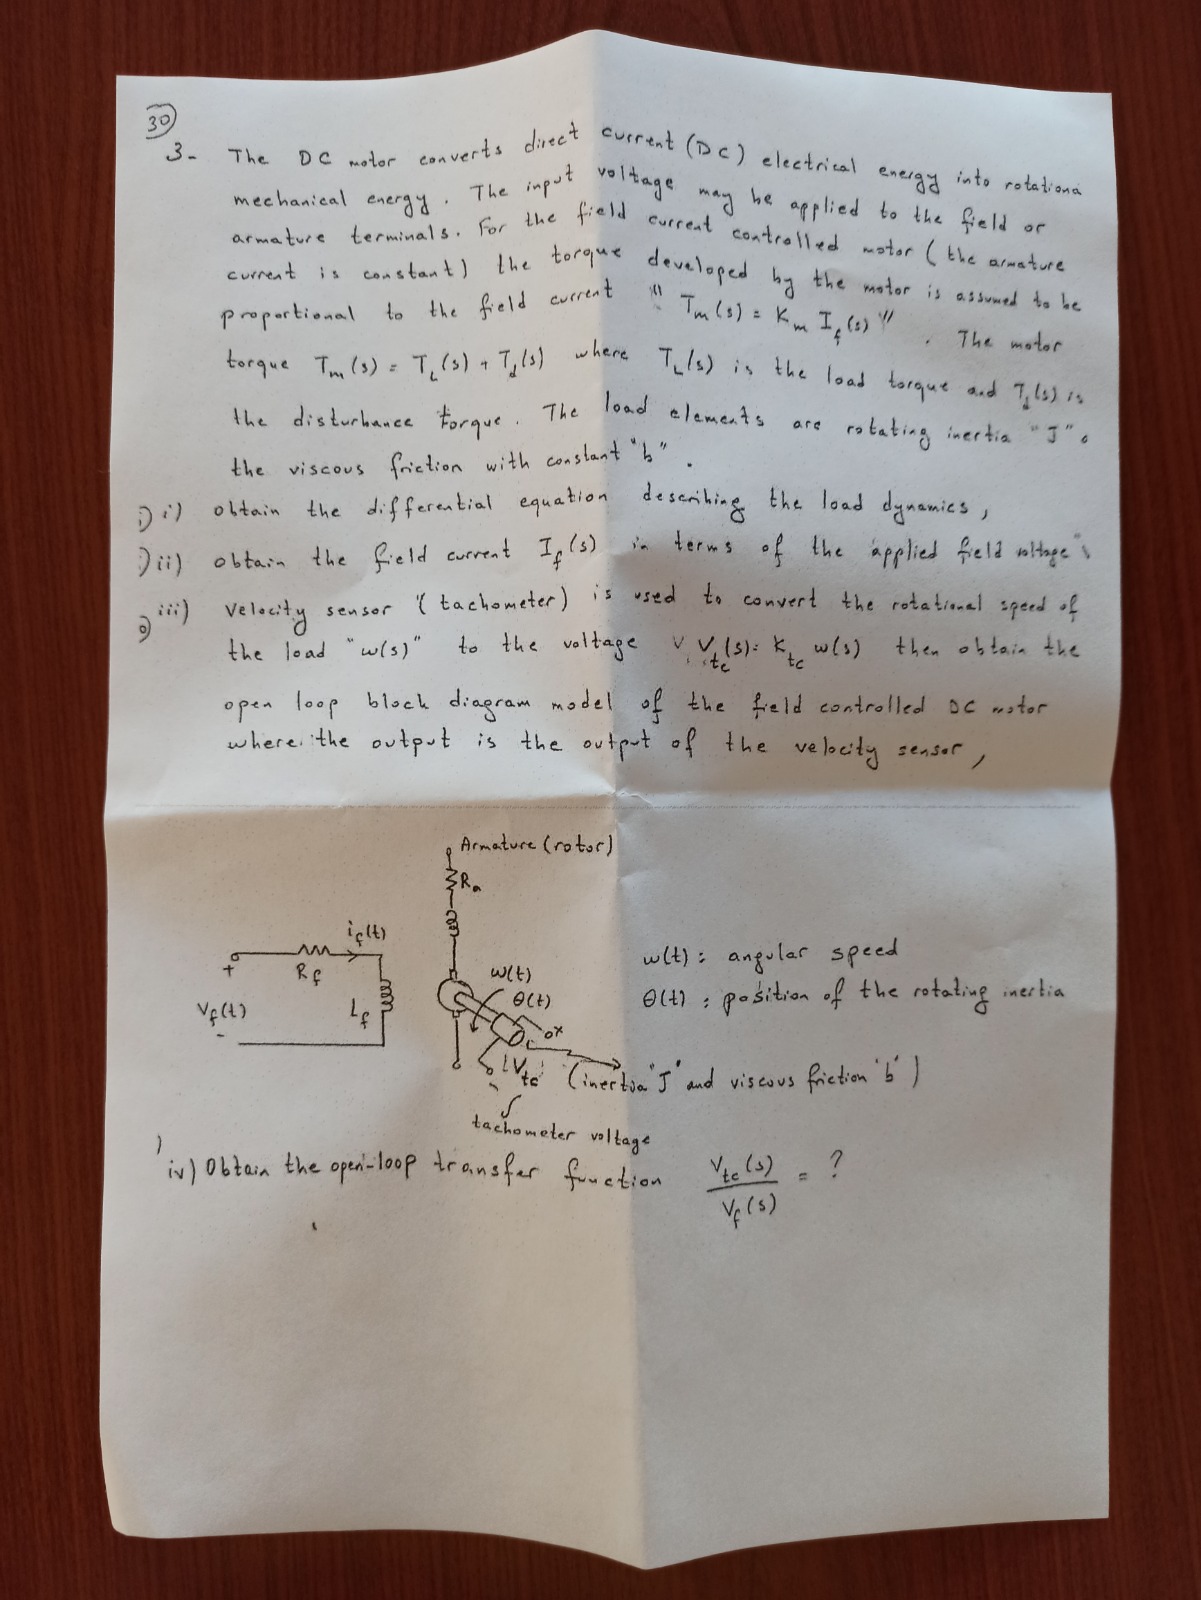 30
3- The DC motor converts direct current (DC) electrical energy into rotationa
mechanical energy. The input voltage may be applied to the field or
armature terminals. For the field current controlled motor (the armature
current is constant) the torque developed by the motor is assumed to be
proportional to the field current "Tm(s) = Km If(s)". The motor
torque Tm(s) = TL(s) + Td(s) where TL(s) is the load torque and Td(s) is
the disturbance torque. The load elements are rotating inertia "J"
the viscous friction with constant "b".
i) obtain the differential equation describing the load dynamics,
ii) obtain the field current If(s) in terms of the applied field voltage
iii) velocity sensor (tachometer) is used to convert the rotational speed of
the load "w(s)" to the voltage Vtc(s) = Ktc w(s) then obtain the
open loop block diagram model of the field controlled DC motor
where the output is the output of the velocity sensor,
Armature (rotor)
Ra
if(t)
+
Rf
Vf(t)
Lf
-
w(t)
θ(t)
Vtc
w(t) : angular speed
θ(t) : position of the rotating inertia
(inertia "J" and viscous friction 'b')
tachometer voltage
iv) Obtain the open-loop transfer function Vtc(s)/Vf(s) = ?